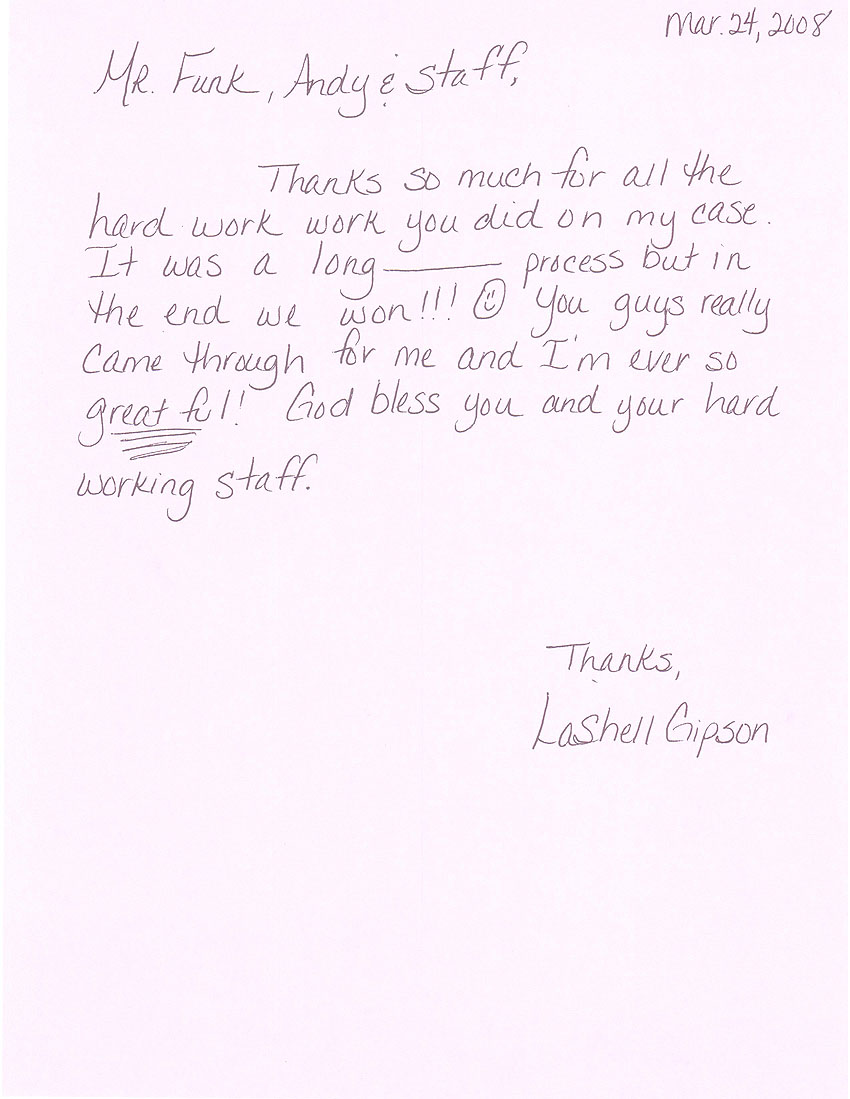 Mar. 24, 2008
Mr. Funk, Andy & Staff,
Thanks so much for all the
hard work work you did on my case.
It was a long ______ process but in
the end we won!!! ☺ You guys really
came through for me and I'm ever so
greatful! God bless you and your hard
working staff.
Thanks,
LaShell Gipson